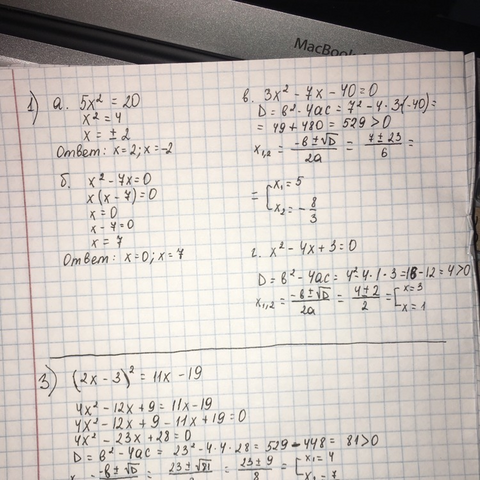 MacBook
1) а. 5x² = 20
x² = 4
x = ± 2
Ответ: x = 2; x = -2
б. x² - 7x = 0
x(x - 7) = 0
x = 0
x - 7 = 0
x = 7
Ответ: x = 0; x = 7
в. 3x² - 7x - 40 = 0
D = в² - 4ac = 7² - 4 · 3 · (-40) =
= 49 + 480 = 529 > 0
x₁,₂ = (-в ± √D) / 2a = (7 ± 23) / 6 =
= [ x₁ = 5
x₂ = - 8/3
г. x² - 4x + 3 = 0
D = в² - 4ac = 4² 4 · 1 · 3 = 16 - 12 = 4 > 0
x₁,₂ = (-в ± √D) / 2a = (4 ± 2) / 2 = [ x = 3
x = 1
3) (2x - 3)² = 11x - 19
4x² - 12x + 9 = 11x - 19
4x² - 12x + 9 - 11x + 19 = 0
4x² - 23x + 28 = 0
D = в² - 4ac = 23² - 4 · 4 · 28 = 529 - 448 = 81 > 0
(-в ± √D) = (23 ± √81) = (23 ± 9) / 8 = [ x₁ = 4